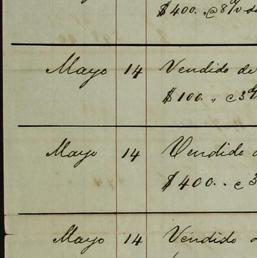 $400. @ 8% d
Mayo 14 Vendido de
$100. „ c 3%
Mayo 14 Vendido d
$400. . c 3
Mayo 14 Vendido d